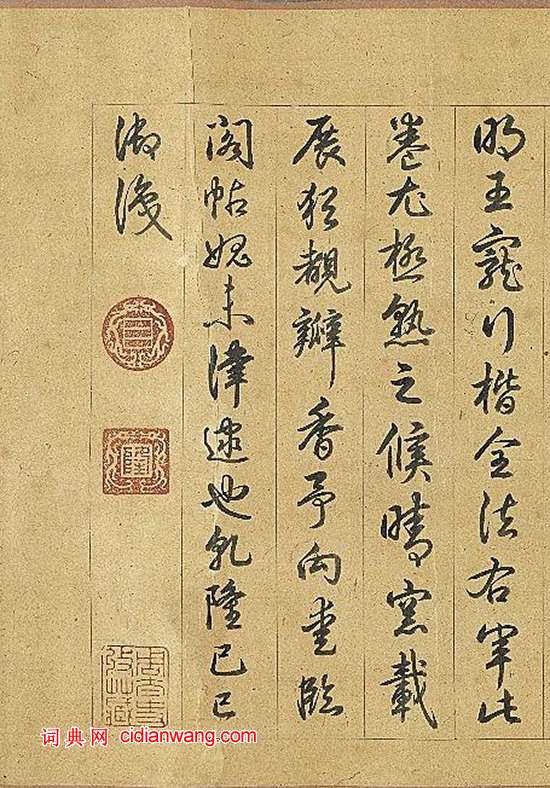 明王寵行楷全法右軍此
卷尤極熟之候晴窓載
展猶覩瓣香予向臨
閣帖媿未津逮也乾隆己巳
御識
隆
词典网 cidianwang.com